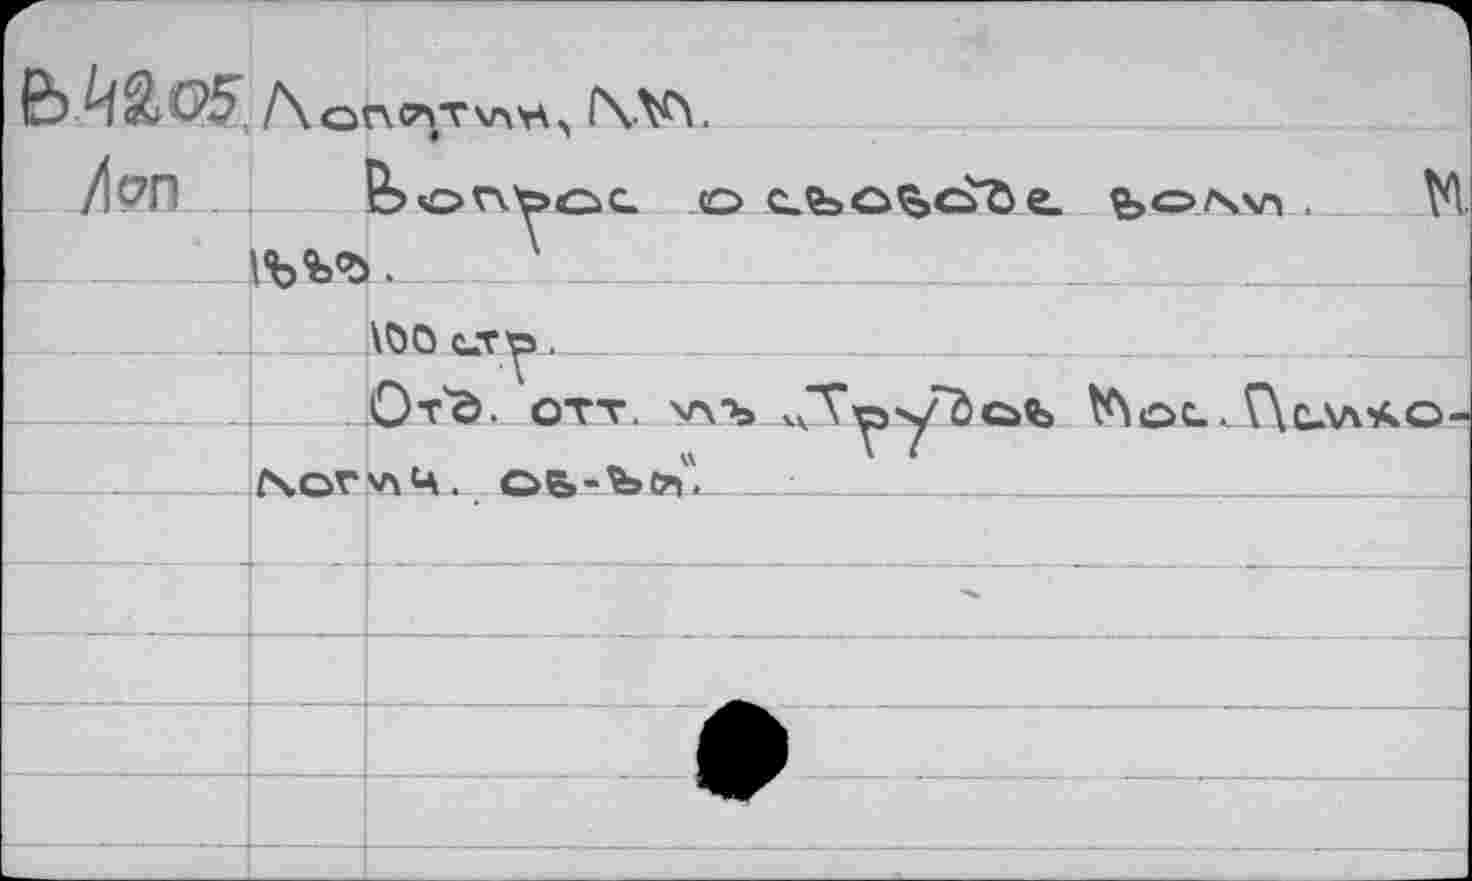 В.Ч2.05. Лопатин, Л.М.
Лоп Вопрос о свободе воли. М.
1889.
100 стр.
Отд. отт. изъ „Трудов Мос. Психо-
логич. об-ва".